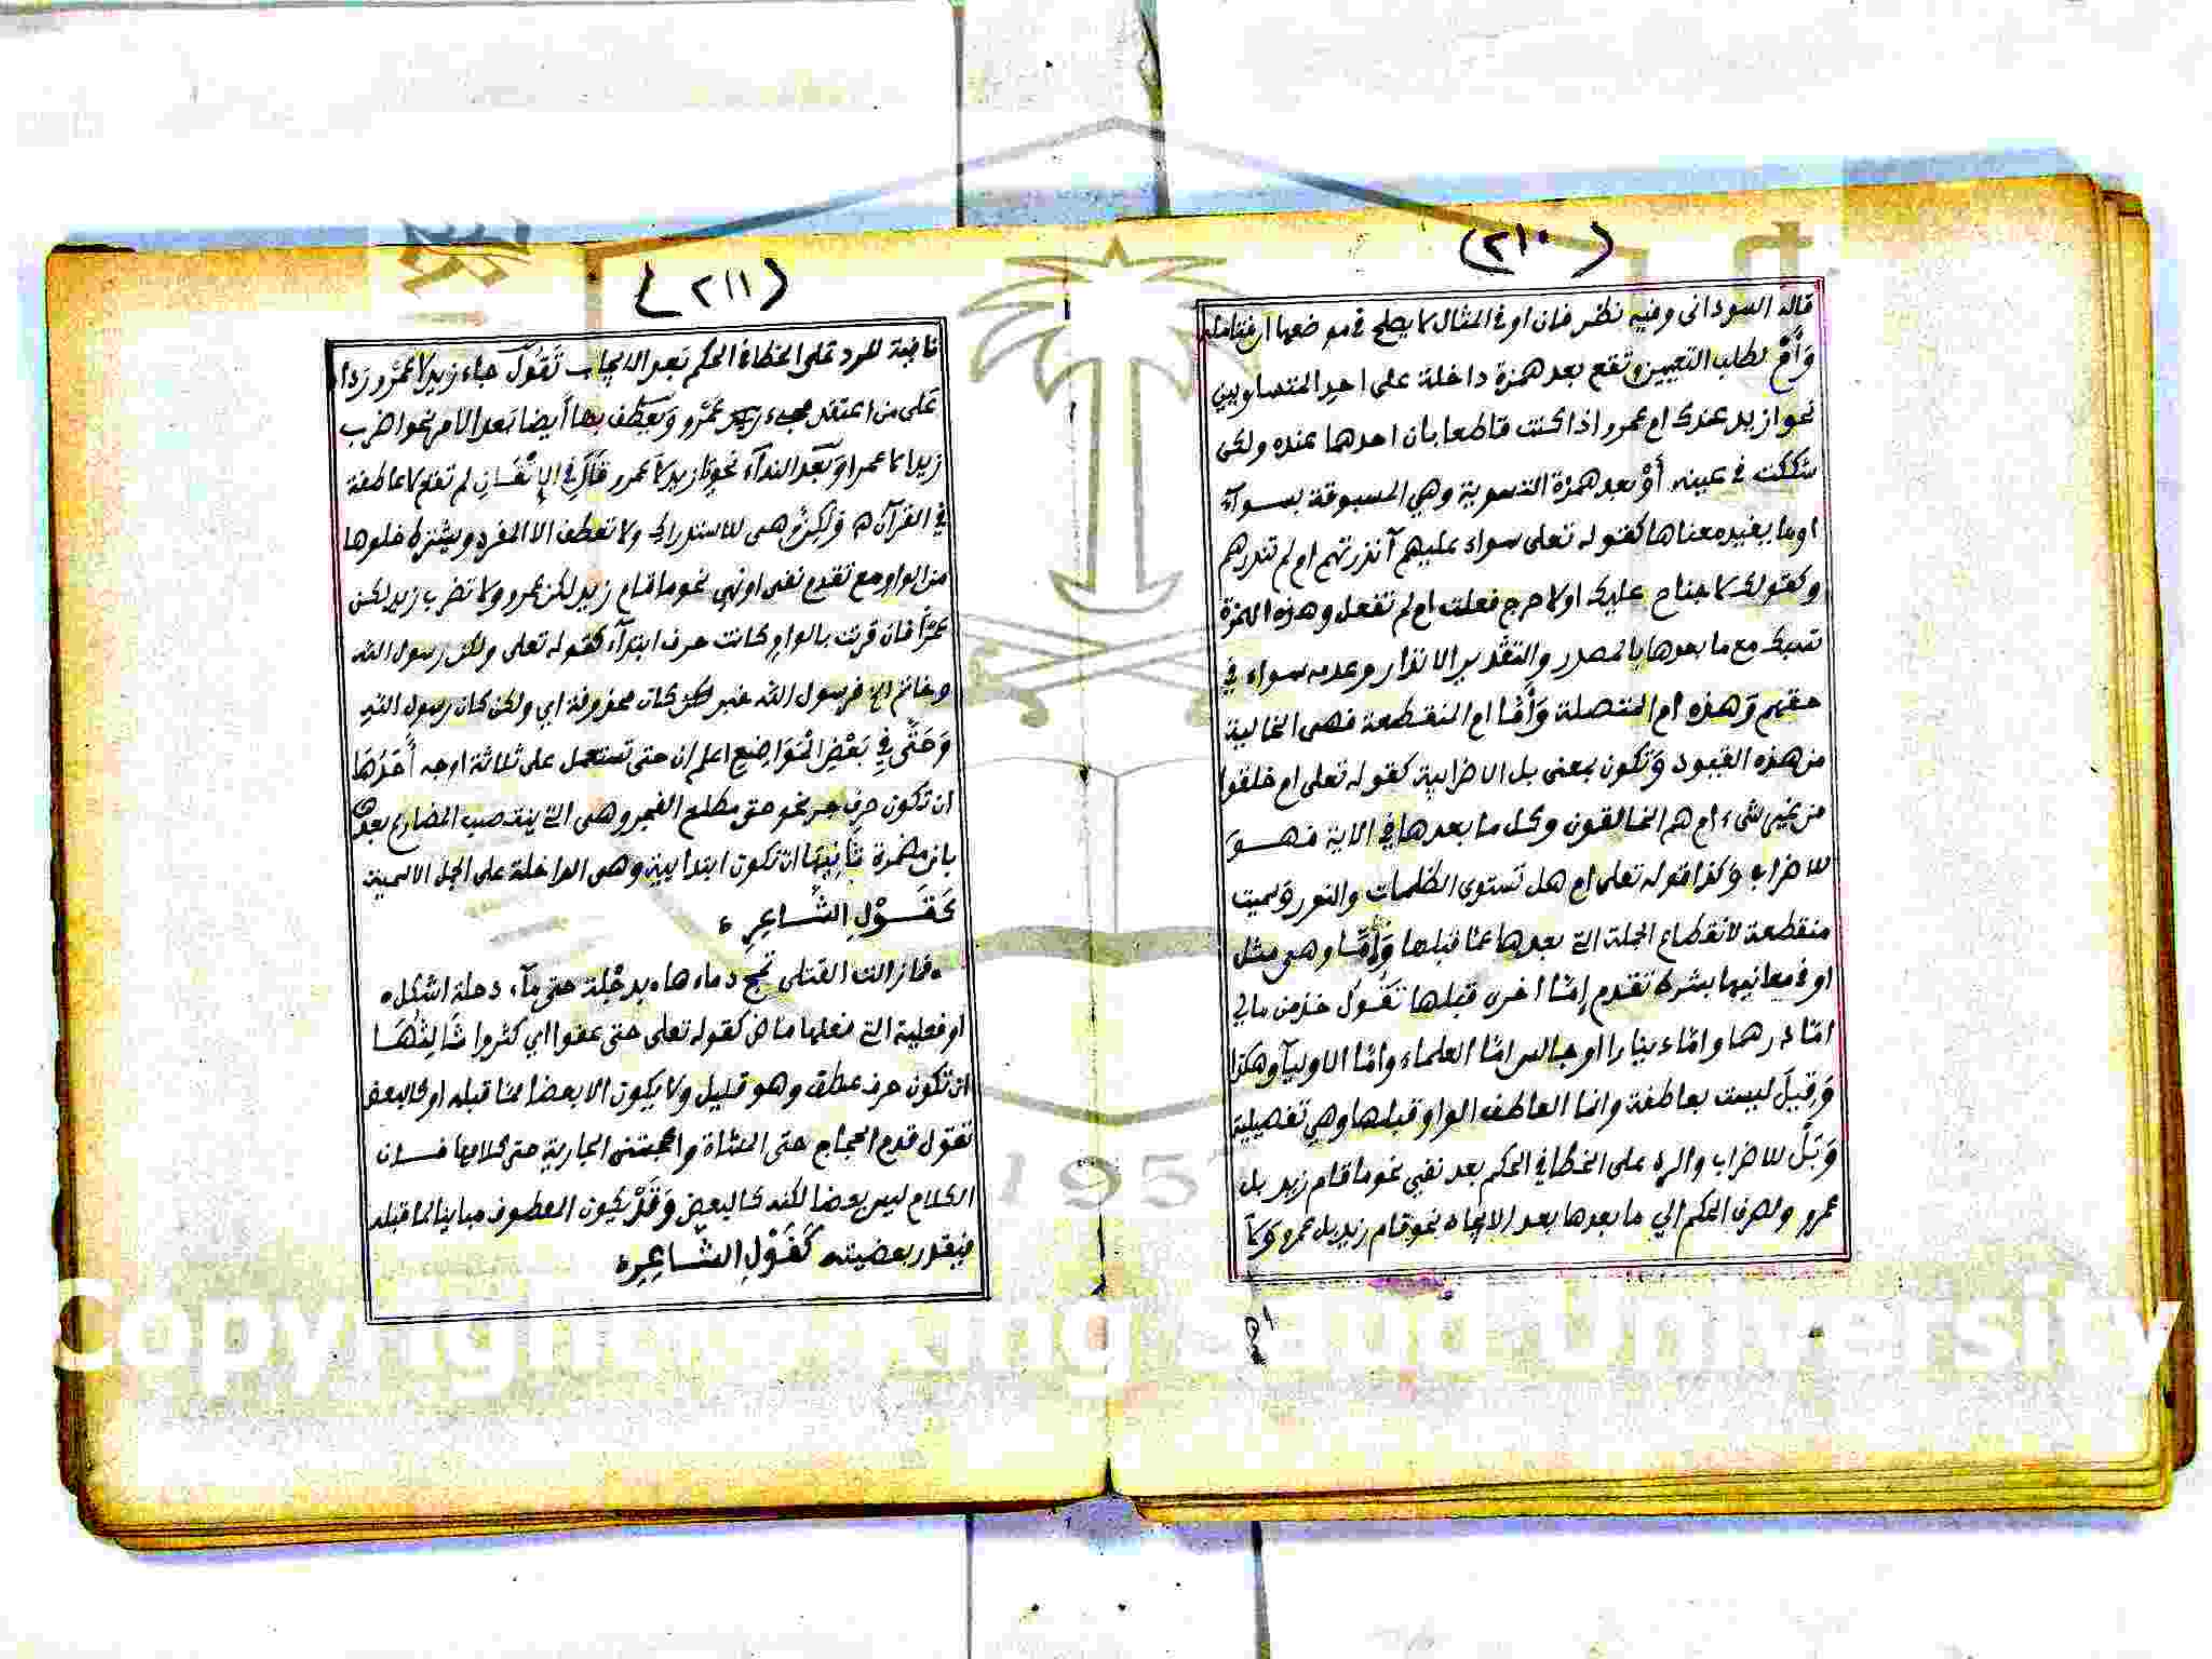 (٢١٠)
قاله السوداني وفيه نظر فان او في المثال لا يصلح في موضعها ام فتامله
وَأَمْ لطلب التعيين وتقع بعد همزة داخلة على احد المتساويين
نحو ازيد عندك ام عمرو اذا كنت قاطعا بان احدهما عنده ولكن
شككت في عينه أَوْ بعد همزة التسوية وهي المسبوقة بسوآء
او ما يفيد معناها كقوله تعلى سواء عليهم آنذرتهم ام لم تنذرهم
وكقولك لا جناح عليك اولا حرج فعلت ام لم تفعل وهذه الهمزة
تسبك مع ما بعدها بالمصدر والتقدير الانذار وعدمه سواء في
حقهم وَهذه ام المتصلة وَأَمَّا ام المنقطعة فهى الخالية
من هذه القيود وَتكون بمعنى بل الاضرابية كقوله تعلى ام خلقوا
من غير شيء ام هم الخالقون وكل ما بعدها في الاية فهو
للاضراب وكذا قوله تعلى ام هل تستوى الظلمات والنور وَسميت
منقطعة لانقطاع الجملة التي بعدها عما قبلها وَإِمَّا وهي مثل
او في معانيها بشرط تقدم إمَّا اخرى قبلها تَقُولُ خذ من مالي
امّا درهما وامّا دينارا او جالس امّا العلماء وامّا الاوليآء وهكذا
وَقِيلَ ليست بعاطفة وانما العاطف الواو قبلها وهي تفصيلية
وَبَلْ للاضراب والرد على الخطا في الحكم بعد نفي نحو ما قام زيد بل
عمرو ولصرف الحكم الي ما بعدها بعد الايجاب نحو قام زيد بل عمرو وَلَا
(٢١١)
نافية للرد على الخطا في الحكم بَعد الايجاب تَقُولُ جاء زيد لا عَمْرو ردا
عَلى من اعتقد مجيء زيد وعَمْرو وَيعطف بها أيضا بَعد الامر نحو اضرب
زيدا لا عمرا وَبَعْد الندآء نحو يا زيد لا عمرو قَالَ في الإتْقَانِ لم تقع لا عاطفة
في القرآن وَلَكِنْ وهى للاستدراك ولا تعطف الا المفرد ويشترط خلوها
من الواو مع تقدم نفى او نهي نحو ما قام زيد لكن عمرو ولا تضرب زيد لكن
عمْرًا فان قرنت بالواو كانت حرف ابتدآء كقوله تعلى ولكن رسول الله
وخاتم الخ فرسول الله خبر كان محذوفة اي ولكن كان رسول الله
وَحَتَّى فِي بَعْضِ الْمَوَاضِعِ اعلم ان حتى تستعمل على ثلاثة اوجه أَحَدُهَا
ان تكون حرف جر نحو حتى مطلع الفجر وهى التي ينتصب المضارع بعدها
بان مضمرة ثَانِيهَا ان تكون ابتدايية وهى الداخلة على الجمل الاسمية
كَقَوْلِ الشَّاعِرِ
فما زالت القتلى تمج دماءها بدجْلة حتى مآء دجلة اشكل
او فعلية التي فعلها ماض كقوله تعلى حتى عفوا اي كثروا ثَالِثُهَا
ان تكون حرف عطف وهو قليل ولا يكون الا بعضا مما قبله او كالبعض
تقول قدم الحجاج حتى المشاة واعجبتنى الجارية حتى كلامها فان
الكلام ليس بعضا لكنه كالبعض وَقَدْ يكون المعطوف مباينا لما قبله
فيقدر بعضيته كَقَوْلِ الشَّاعِرِ
Copyright © King Saud University
1957